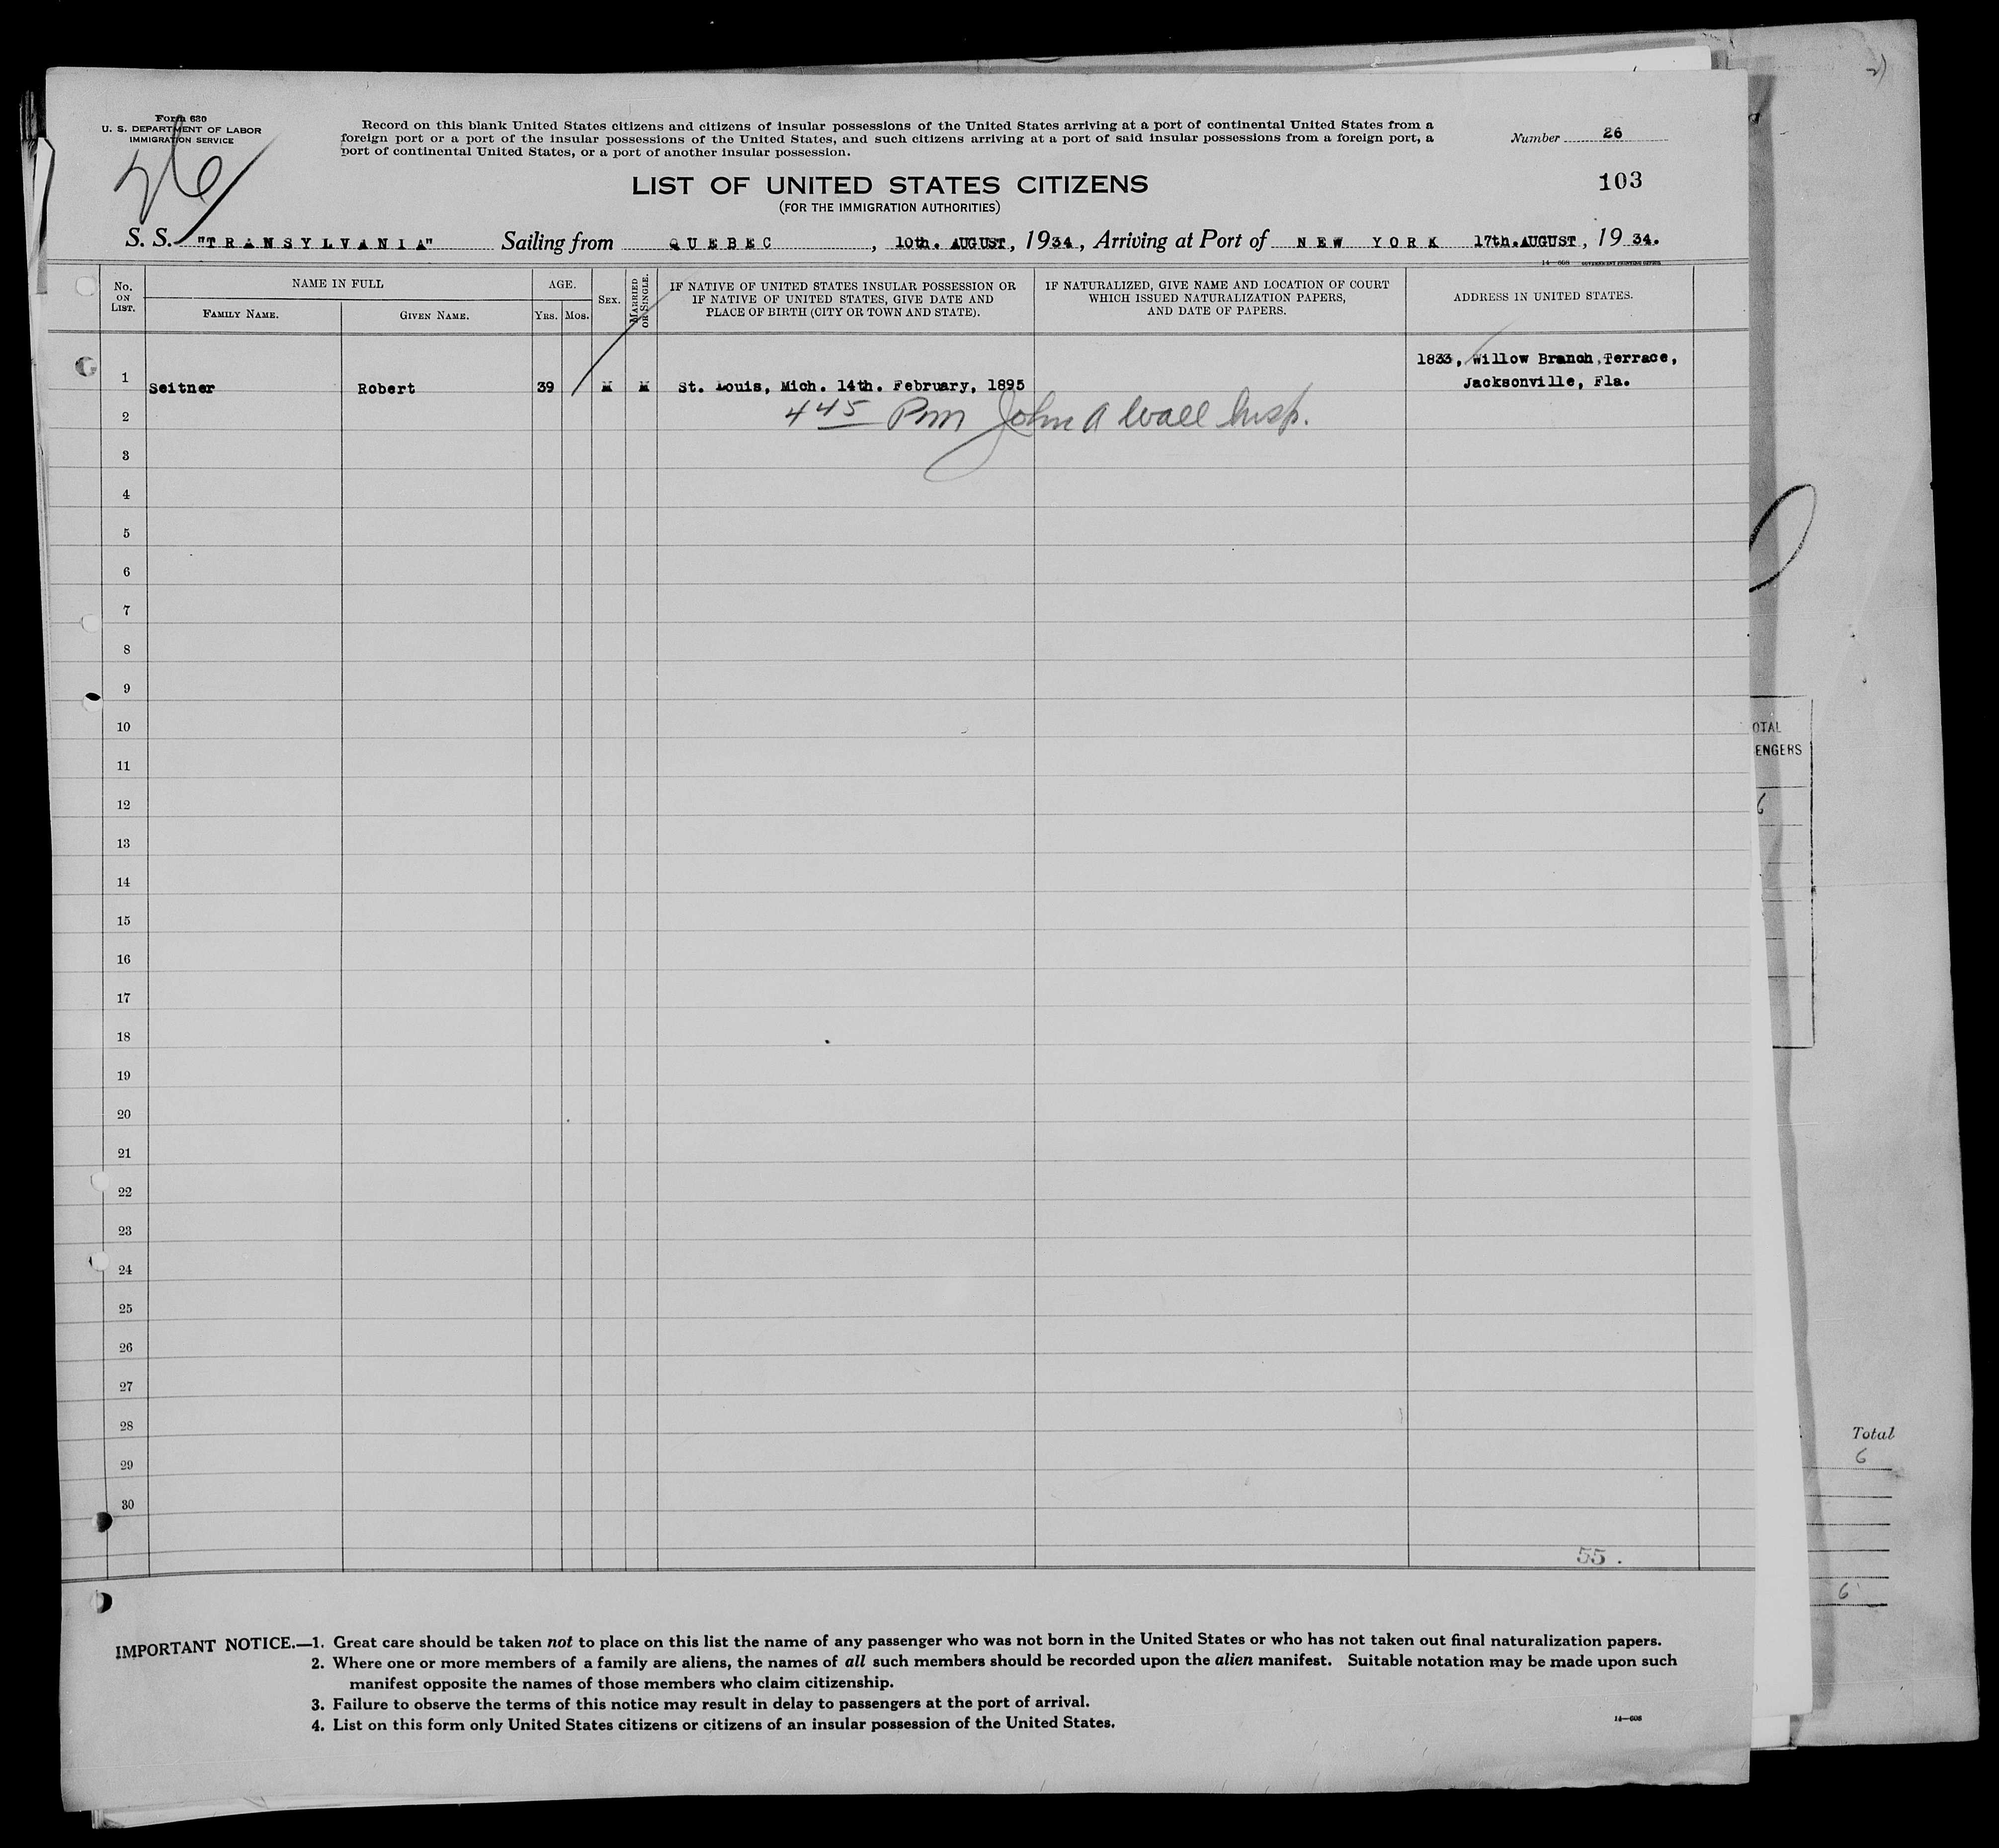 Form 630
U. S. DEPARTMENT OF LABOR
IMMIGRATION SERVICE
26
Record on this blank United States citizens and citizens of insular possessions of the United States arriving at a port of continental United States from a
foreign port or a port of the insular possessions of the United States, and such citizens arriving at a port of said insular possessions from a foreign port, a
port of continental United States, or a port of another insular possession.
Number 26
103
LIST OF UNITED STATES CITIZENS
(FOR THE IMMIGRATION AUTHORITIES)
S. S. "TRANSYLVANIA" Sailing from QUEBEC, 10th. AUGUST, 1934, Arriving at Port of NEW YORK 17th. AUGUST, 1934.
14—608 GOVERNMENT PRINTING OFFICE
No. ON LIST.
NAME IN FULL
FAMILY NAME.
GIVEN NAME.
AGE.
YRS. MOS.
SEX.
MARRIED OR SINGLE.
IF NATIVE OF UNITED STATES INSULAR POSSESSION OR
IF NATIVE OF UNITED STATES, GIVE DATE AND
PLACE OF BIRTH (CITY OR TOWN AND STATE).
IF NATURALIZED, GIVE NAME AND LOCATION OF COURT
WHICH ISSUED NATURALIZATION PAPERS,
AND DATE OF PAPERS.
ADDRESS IN UNITED STATES.
1833, Willow Branch, Terrace,
1 Seitner Robert 39 M M St. Louis, Mich. 14th. February, 1895 Jacksonville, Fla.
2 4 45 Pm John A Wall Insp.
3
4
5
6
7
8
9
10
11
12
13
14
15
16
17
18
19
20
21
22
23
24
25
26
27
28
29
30
55.
IMPORTANT NOTICE.—1. Great care should be taken not to place on this list the name of any passenger who was not born in the United States or who has not taken out final naturalization papers.
2. Where one or more members of a family are aliens, the names of all such members should be recorded upon the alien manifest. Suitable notation may be made upon such
manifest opposite the names of those members who claim citizenship.
3. Failure to observe the terms of this notice may result in delay to passengers at the port of arrival.
4. List on this form only United States citizens or citizens of an insular possession of the United States.
14—608
OTAL
ENGERS
6
Total
6
6